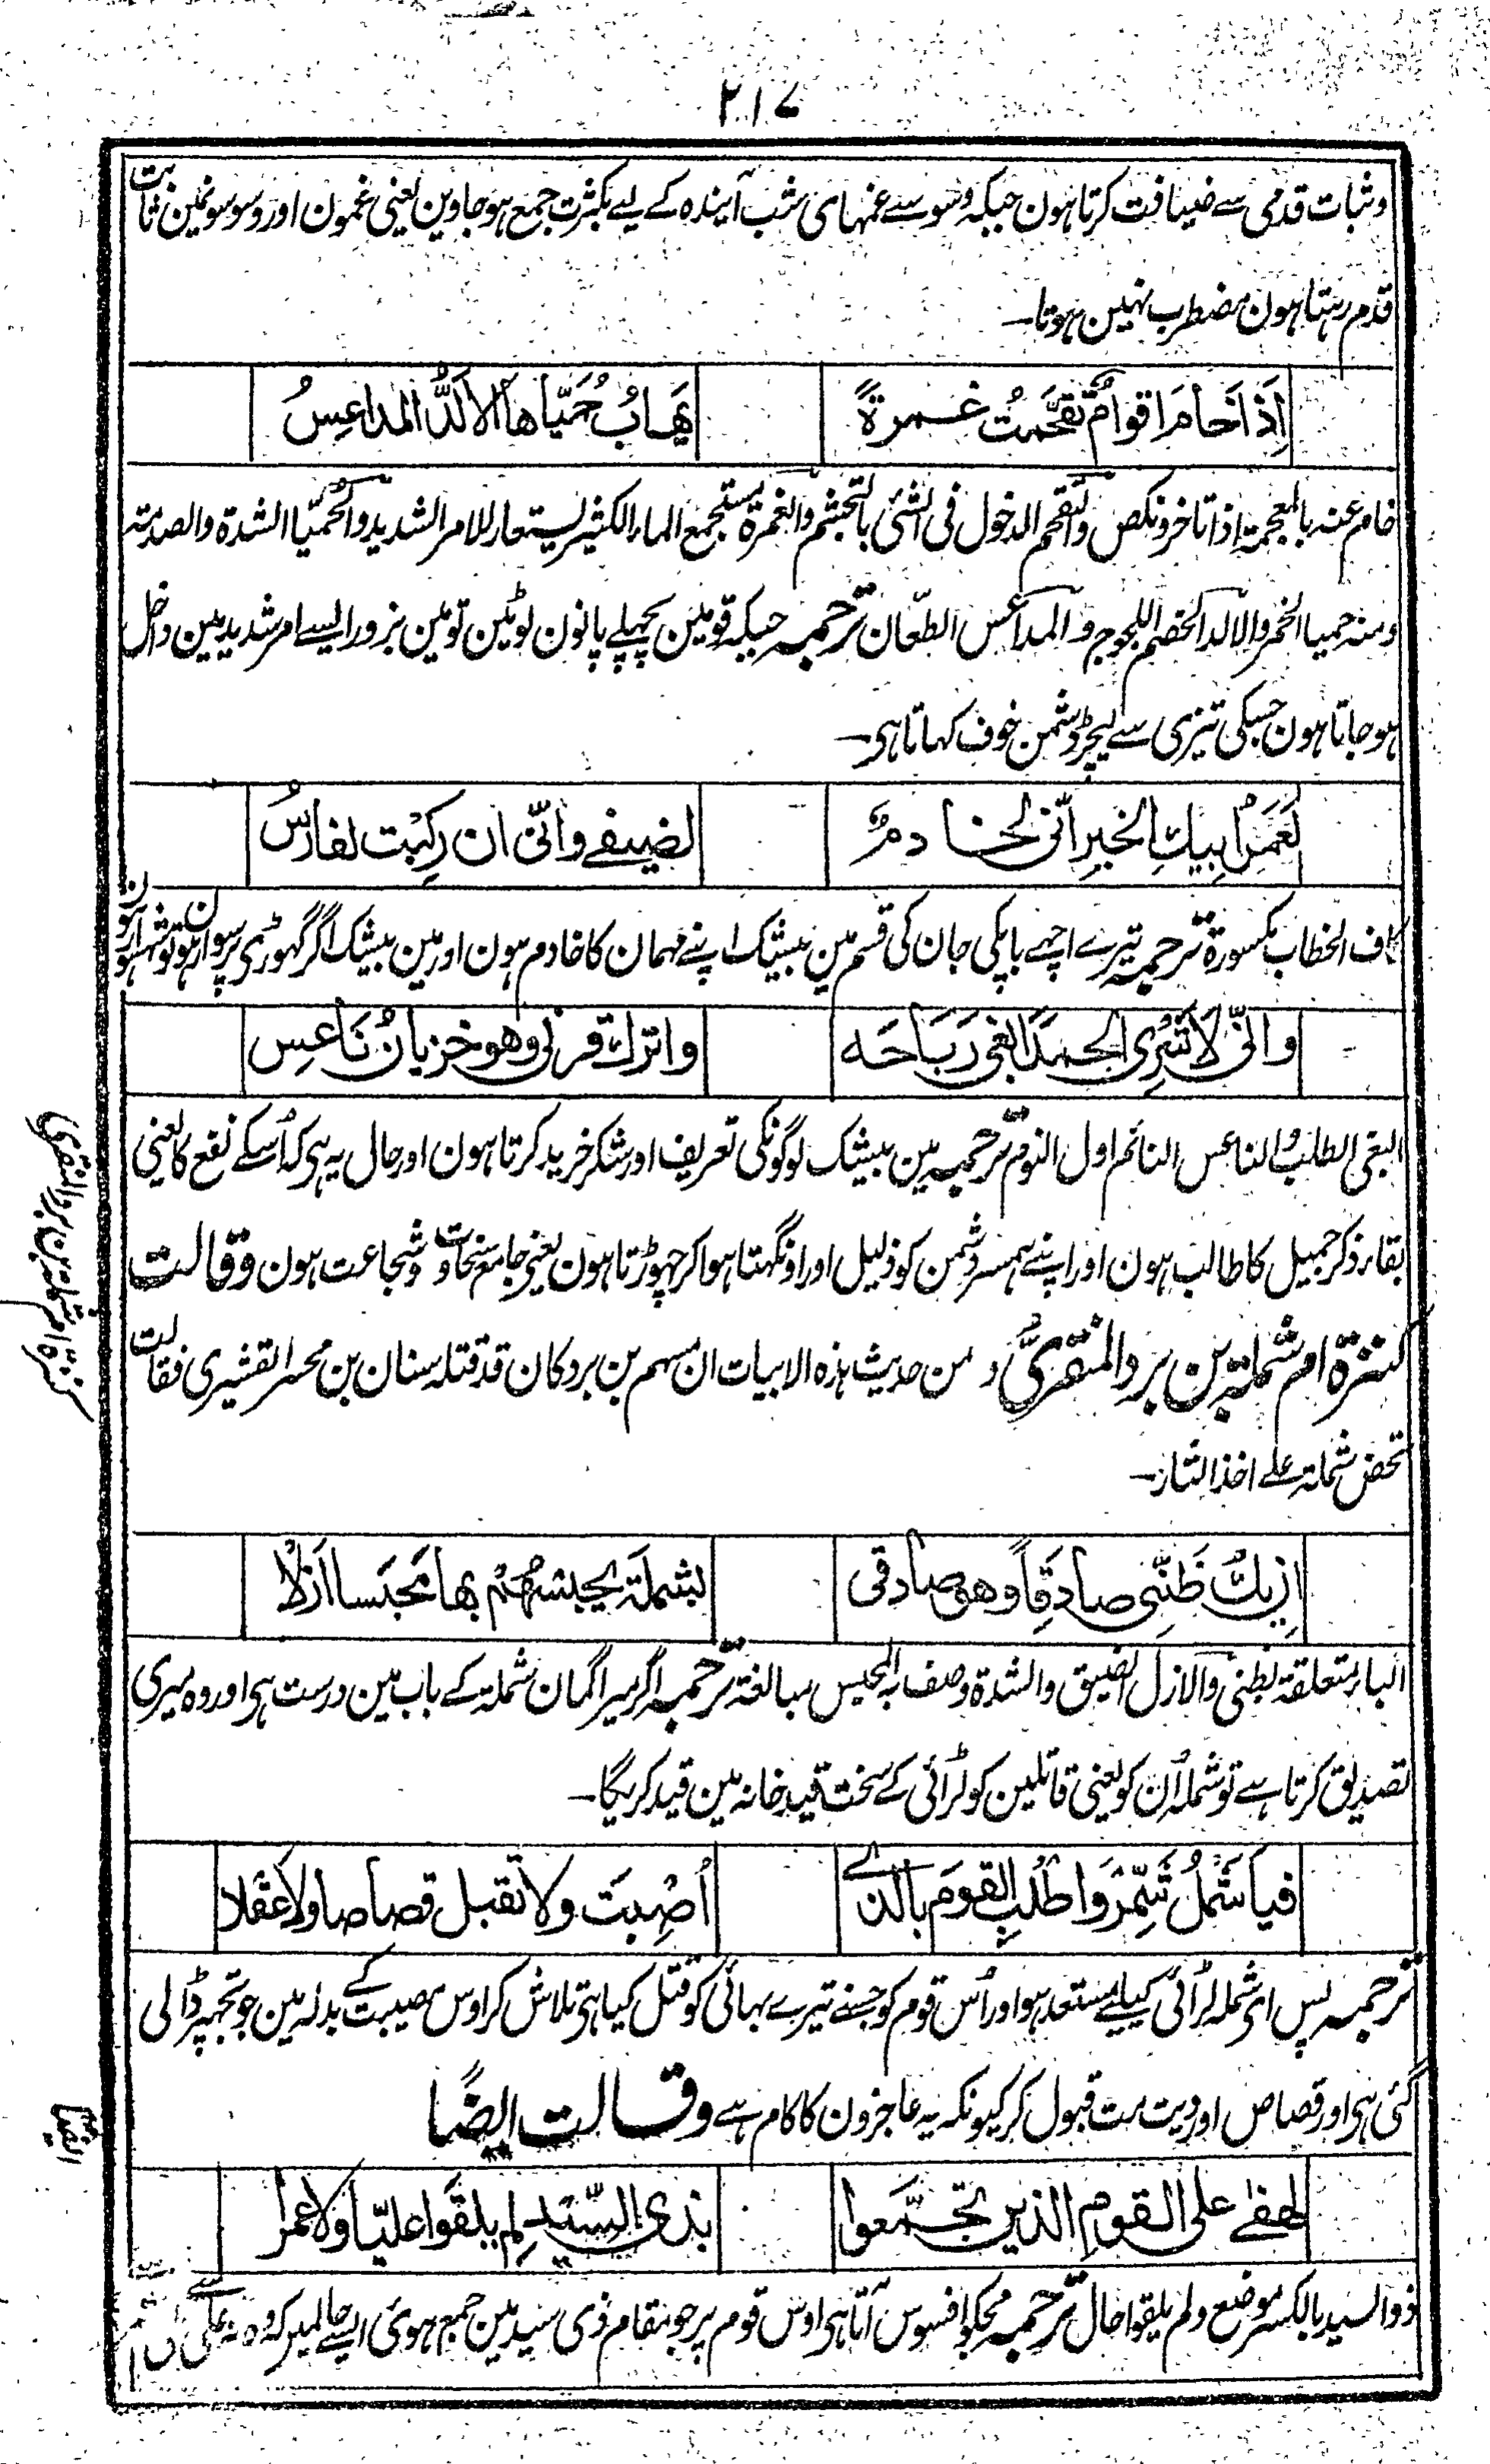 ۲۱۷
وثبات قدمی سے ضیافت کرتا ہون جبکہ وسوسے غمہای شب آیندہ کے لیے بکثرت جمع ہوجاوین یعنی غمون اور وسوسونمین ثابت
قدم رہتا ہون مضطرب نہین ہوتا۔
اِذَا خَامَ اقوامٌ تقحَّمتُ غمرةً
یَهابُ حُمَیّاها الالَدُّ المداعِسُ
خام عنہ بالمعجمۃ اذا تاخر ونکص والتقحم الدخول فی الشئ بالتجشم والغمرۃ مستجمع الماء الکثیر یستعار للامر الشدید والحُمیّا الشدۃ والصدمۃ
ومنہ حمیا الخمر والالد الخصم اللجوج والمداعس الطعّان ترجمہ جبکہ قومین پچھلے پانون لوٹین تو مین بزور ایسے امر شدید مین داخل
ہوجاتا ہون جسکی تیزی سے لیچڑ دشمن خوف کہاتا ہی۔
لَعَمرُ ابیكِ الخیرِ انّی لخادمٌ
لضیفے وانّی ان رکِبْت لفارسُ
کاف الخطاب مکسورۃ ترجمہ تیرے اچھے باپکی جان کی قسم مین بیشک اپنے مہمان کا خادم ہون اور مین بیشک اگر گہوڑی پر سوار ہون تو شہسوار ہون
وانّی لَاَشْرِی الحمدَ ابغی رَبَاحَه
واترك قرنی وهو خزیانُ نَاعِس
البغی الطلب والناعس النائم اول النوم ترجمہ مین بیشک لوگونکی تعریف اور شکر خرید کرتا ہون اور حال یہ ہی کہ اُسکے نفع کا یعنی
بقاء ذکر جمیل کا طالب ہون اور اپنے ہمسر دشمن کو ذلیل اور اونگہتا ہوا کر چہوڑتا ہون یعنی جامع سخاوت وشجاعت ہون وقالت
کنزة ام شملة بن برد المنقریّ ومن حدیث ہذہ الابیات ان سہم بن برد کان قد قتلہ سنان بن محسر القشیری فقالت
تحض شملۃ علے اخذ الثار۔
اِن یكُ ظَنّی صادقاً وهو صادقی
بشملة یحبسهُم بها مَحبَسا اَزلا
الباء متعلقۃ بظنی والازل الضیق والشدۃ وصف بہ المحبس مبالغۃ ترجمہ اگر میرا گمان شملہ کے باب مین درست ہی اور وہ میری
تصدیق کرتا ہے تو شملہ اُن کو یعنی قاتلین کو لڑائی کے سخت قید خانہ مین قید کریگا۔
فیا شَملُ شَمِّرْ واطلُبِ القومَ بالذے
اُصِبتَ ولا تقبل قصاصا ولا عَقلا
ترجمہ پس ای شملہ لڑائی کیلیے مستعد ہو اور اُس قوم کو جسنے تیرے بہائی کو قتل کیا ہی تلاش کر اوس مصیبت کے بدلہ مین جو تجہپر ڈالی
گئی ہی اور قصاص اور دیت مت قبول کر کیونکہ یہ عاجزون کا کام ہے وقالت ایضًا
لهفے علی القومِ الذین تجمَّعوا
بذی السِّیدِ لم یلقوا علیّا ولا عمرا
ذو السید بالکسر موضع ولم یلقوا حال ترجمہ مجکو افسوس آتا ہی اوس قوم پر جو بمقام ذی سید مین جمع ہوئی ایسے حالمین کہ وہ نہ علی
کنزة ام شملة بن برد المنقری
ایضًا